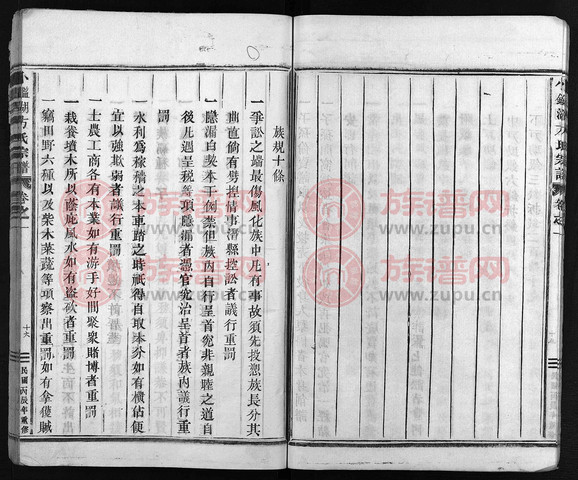 族規十條
一爭訟之端最傷風化族中凡有事故須先投憑族長分其
曲直倘有劈控情事潛縣控訟者議行重罰
一隱漏自契本干例禁但族內自行呈首究非親睦之道自
後凡遇呈税等項隱漏者憑官究治呈首者族內議行重
一水利爲稼穡之本車踏之時祇得自取本分如有橫佔便
宜以強欺弱者議行重罰
一士農工商各有本業如有游手好閒聚衆賭博者重罰
一栽養墳木所以蔭庇風水如有盗砍者重罰
一竊田野六種以及柴木菜蔬等項察出重罰如有拿獲賊
小鑑湖方氏宗譜
卷之一
十六
民國丙辰年重修
小鑑湖方氏宗譜
卷之一
族谱网
www.zupu.cn
族谱网
www.zupu.cn
族谱网
www.zupu.cn
族谱网
www.zupu.cn